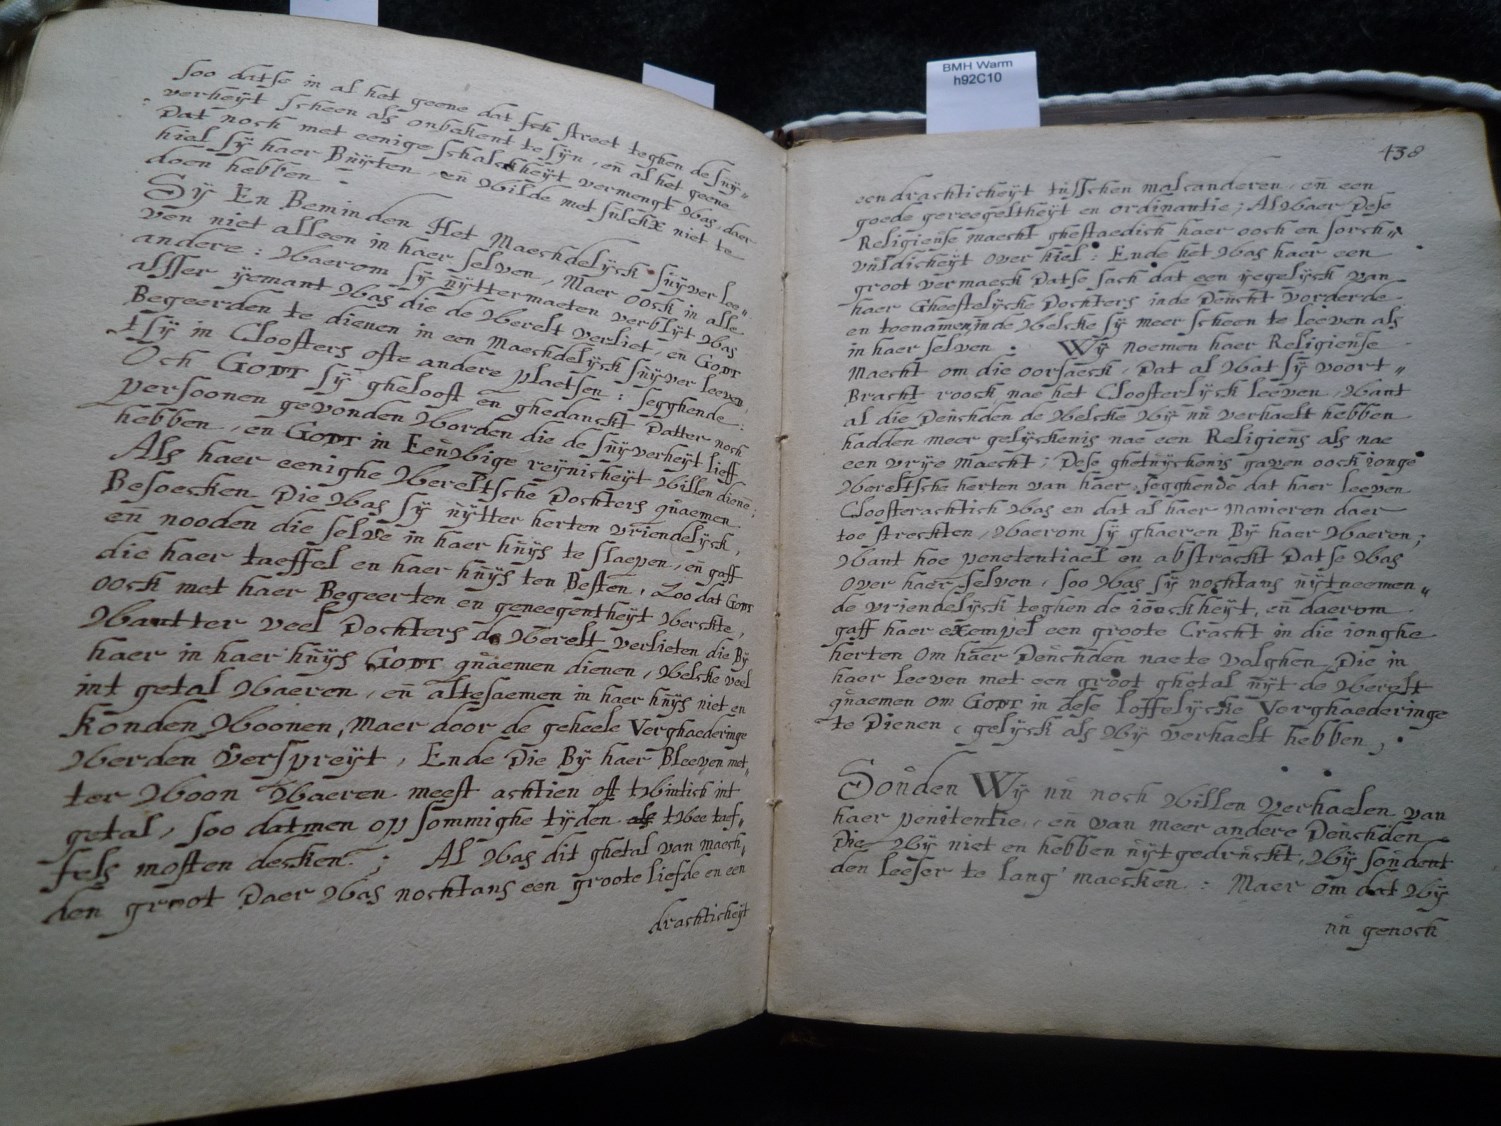 soo datse in al het geene dat sch street teghen de suÿ„
verheÿt scheen als onbekent te sÿn, en̄ al het geene
Dat noch met eenige schalckheÿt vermengt was, daer
hiel sÿ haer Buÿten, en̄ wilde met sulckx niet te
doen hebben
Sÿ En Beminden Het Maechdelÿck suÿver lee„
ven niet alleen in haer selven, Maer oock in alle
andere: Waerom sÿ uÿttermaeten verblÿt was
alsser ÿemant was die de werelt verliet, en GODT
Begeerden te dienen in een Maechdelÿck suÿver leeven,
tsÿ in Cloosters ofte andere plaetsen: segghende:
Och GODT sÿ ghelooft en ghedanckt Datter noch
persoonen gevonden worden die de suÿverheÿt lieff
hebben, en GODT in Eeuwige reÿnicheÿt willen diene:
Als haer eenighe wereltsche Dochters quaemen
Besoecken Die was sÿ uÿtter herten vriendelÿck,
en̄ nooden die selve in haer huÿs te slaepen, en̄ gaff
die haer taeffel en haer huÿs ten Besten, Zoo dat GODT
oock met haer Begeerten en geneegentheÿt werckte,
Wantter veel Dochters de werelt verlieten die Bÿ
haer in haer huÿs GODT quaemen dienen, welcke veel
int getal waeren, en̄ altesaemen in haer huÿs niet en
konden woonen, Maer door de geheele Verghaederinge
werden verspreÿt, Ende Die Bÿ haer Bleeven met
ter woon waeren meest achtien oft twintich int
getal, soo datmen op sommighe tÿden als twee taef„
fels mosten decken; Al was dit ghetal van maech„
den groot Daer was nochtans een groote liefde en een
drachticheÿt
BMH Warm
h92C10
438
eendrachticheÿt tusschen malcanderen, en̄ een
goede gereegeltheÿt en ordinantie; Al waer Dese
Religieuse maecht ghestaedich haer ooch en sorch„
vuldicheÿt over hiel: Ende het was haer een
groot vermaeck Datse sach dat een ÿegelÿck van
haer Gheestelÿcke Dochters inde Deucht vorderde
en toenamen, inde welcke sÿ meer scheen te leeven als
in haer selven. Wÿ noemen haer Religieuse
Maecht om die oorsaeck, Dat al wat sÿ voort„
Bracht roock nae het Cloosterlÿck leeven, want
al die Deuchden de welcke wÿ nu verhaelt hebben
hadden meer gelÿckenis nae een Religieus als nae
een vrije Maecht; Dese ghetuÿchenis gaven oock ionge
wereltsche herten van haer, segghende dat haer leeven
Cloosterachtich was en dat al haer Manieren daer
toe streckten, waerom sÿ ghaeren Bÿ haer waeren;
want hoe penetentiael en abstracht Datse was
over haer selven, soo was sÿ nochtans uÿtneemen„
de vriendelÿck teghen de ioockheÿt, en̄ daerom
gaff haer exempel een groote Cracht in die ionghe
herten om haer Deuchden nae te volghen Die in
haer leeven met een groot ghetal uÿt de werelt
quaemen om GODT in dese loffelÿcke Verghaederinge
te Dienen, gelÿck als wÿ verhaelt hebben,
Souden Wÿ nu noch willen verhaelen van
haer penitentie, en̄ van meer andere Deuchden
Die wÿ niet en hebben uÿtgedruckt, wÿ souden t
den leeser te lang maecken: Maer om dat wÿ
nu genoch